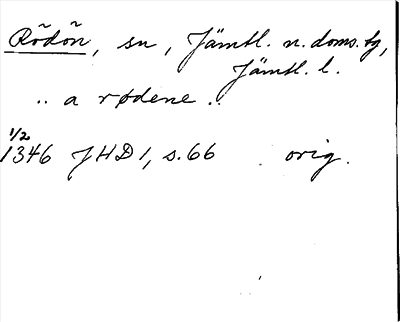 Rödön, sn, Jämtl. n. doms. tg,
Jämtl. l.
.. a rødene ..
1/2
1346 JHD 1, s. 66 orig.